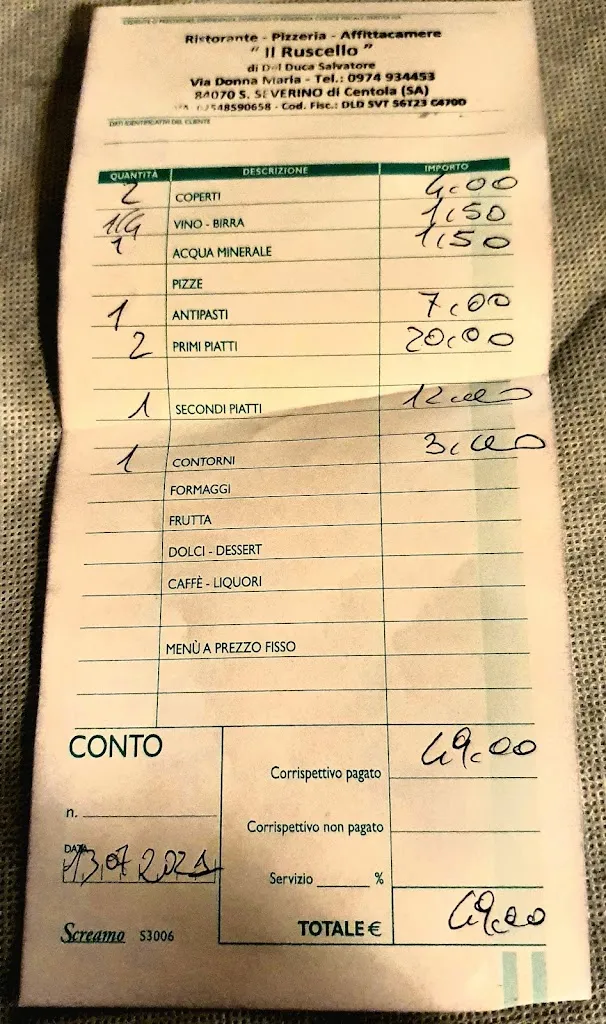 Ristorante - Pizzeria - Affittacamere
" Il Ruscello "
di Del Duca Salvatore
Via Donna Maria - Tel.: 0974 934453
84070 S. SEVERINO di Centola (SA)
02548590658 - Cod. Fisc.: DLD SVT 56T23 G470O
DATI IDENTIFICATIVI DEL CLIENTE
QUANTITÀ DESCRIZIONE IMPORTO
2 COPERTI 4,00
1/4 VINO - BIRRA 1,50
1 ACQUA MINERALE 1,50
PIZZE
1 ANTIPASTI 7,00
2 PRIMI PIATTI 20,00
1 SECONDI PIATTI 12,00
1 CONTORNI 3,00
FORMAGGI
FRUTTA
DOLCI - DESSERT
CAFFÈ - LIQUORI
MENÙ A PREZZO FISSO
CONTO
Corrispettivo pagato 49,00
n.
Corrispettivo non pagato
DATA 13,07 2021
Servizio %
TOTALE € 49,00
Screamo S3006